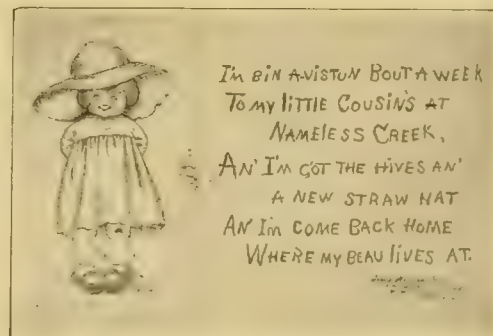 I'm BIN A-VISTUN BOUT A WEEK
TO MY LITTLE COUSIN'S AT
NAMELESS CREEK,
AN' I'M GOT THE HIVES AN'
A NEW STRAW HAT
AN' I'M COME BACK HOME
WHERE MY BEAU LIVES AT.